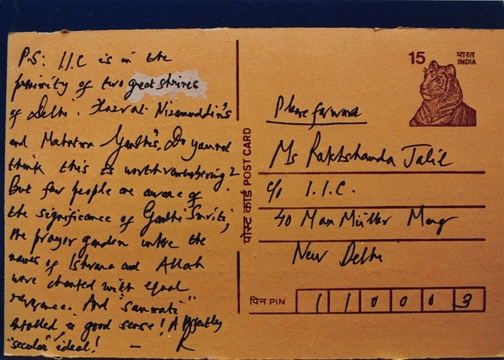 P.S: I.I.C is in the
proximity of two great shrines
of Delhi. Hazrat Nizamuddin's
and Mahatma Gandhi's. Do you not
think this is worth remembering?
But few people are aware of
the significance of Gandhi Smriti,
the prayer garden where the
names of Ishwara and Allah
were chanted with equal
reverence. And "sanmati"
extolled as good sense! A greatly
"secular" ideal! — R
15 भारत
INDIA
पोस्ट कार्ड POST CARD
Please forward
Ms Rakhshanda Jalil
c/o I.I.C.
40 Max Müller Marg
New Delhi
पिन PIN 110003